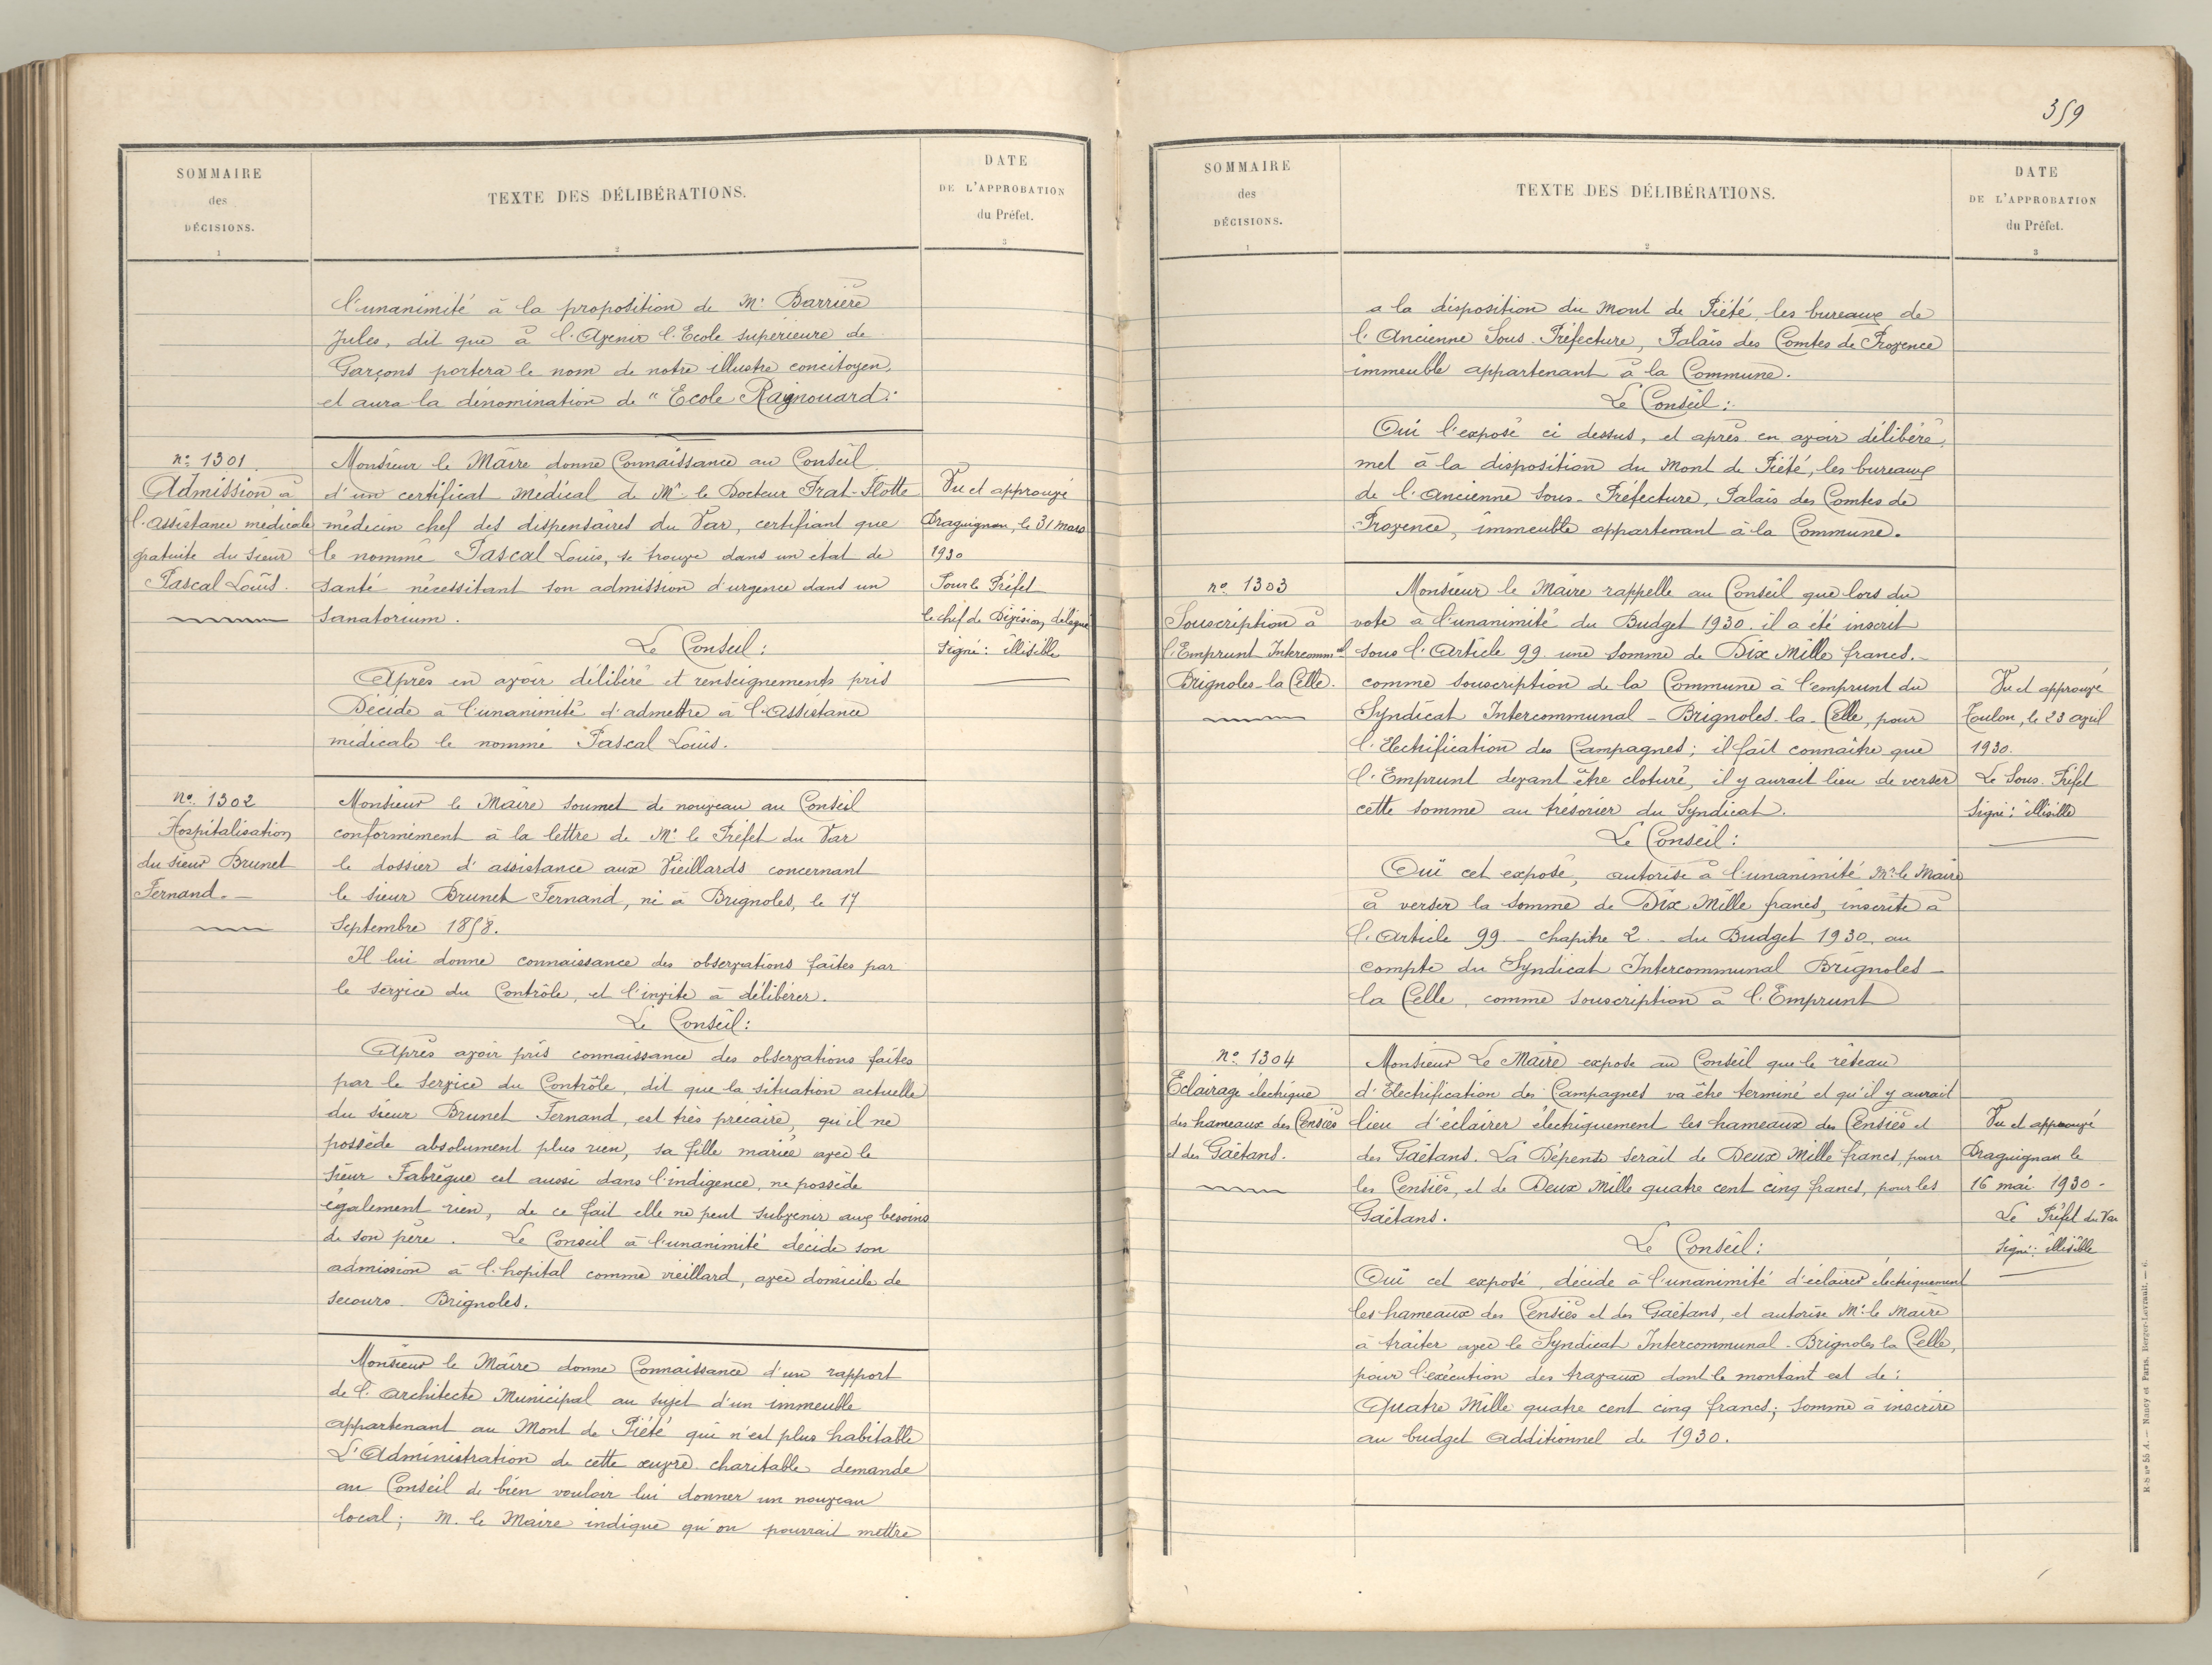 SOMMAIRE
des
DÉCISIONS.
1
TEXTE DES DÉLIBÉRATIONS.
2
DATE
DE L'APPROBATION
du Préfet.
3
l'unanimité à la proposition de Mr Barrière
Jules, dit que à l'Avenir l'Ecole supérieure de
Garçons portera le nom de notre illustre concitoyen,
et aura la dénomination de "Ecole Raynouard."
no 1301
Admission à
l'assistance médicale
gratuite du sieur
Pascal Louis.
Monsieur le Maire donne Connaissance au Conseil
d'un certificat médical de Mr le Docteur Prat-Flotte
médecin chef des dispensaires du Var, certifiant que
le nommé Pascal Louis, se trouve dans un état de
santé nécessitant son admission d'urgence dans un
sanatorium.
Le Conseil:
Après en avoir délibéré et renseignements pris
Décide à l'unanimité d'admettre à l'Assistance
médicale le nommé Pascal Louis.
Vu et approuvé
Draguignan, le 31 mars
1930
Pour le Préfet
le chef de Division, délégué
Signé: illisible
no 1302
Hospitalisation
du sieur Brunet
Fernand.
Monsieur le Maire soumet de nouveau au Conseil
conformément à la lettre de Mr le Préfet du Var
le dossier d'assistance aux Vieillards concernant
le sieur Brunet Fernand, né à Brignoles, le 17
Septembre 1858.
Il lui donne connaissance des observations faites par
le service du Contrôle, et l'invite à délibérer.
Le Conseil:
Après avoir pris connaissance des observations faites
par le Service du Contrôle, dit que la situation actuelle
du sieur Brunet Fernand, est très précaire, qu'il ne
possède absolument plus rien, sa fille mariée avec le
sieur Fabrègue est aussi dans l'indigence, ne possède
également rien, de ce fait elle ne peut subvenir aux besoins
de son père. Le Conseil à l'unanimité décide son
admission à l'hopital comme vieillard, avec domicile de
secours Brignoles.
Monsieur le Maire donne Connaissance d'un rapport
de l'architecte Municipal au sujet d'un immeuble
appartenant au Mont de Piété qui n'est plus habitable
L'Administration de cette œuvre charitable demande
au Conseil de bien vouloir lui donner un nouveau
local; M. le Maire indique qu'on pourrait mettre
359
SOMMAIRE
des
DÉCISIONS.
1
TEXTE DES DÉLIBÉRATIONS.
2
DATE
DE L'APPROBATION
du Préfet.
3
a la disposition du Mont de Piété, les bureaux de
l'Ancienne Sous-Préfecture, Palais des Comtes de Provence
immeuble appartenant à la Commune.
Le Conseil:
Oui l'exposé ci dessus, et après en avoir délibéré,
met à la disposition du Mont de Piété, les bureaux
de l'Ancienne Sous-Préfecture, Palais des Comtes de
Provence, immeuble appartenant à la Commune.
no 1303
Souscription à
l'Emprunt Intercommal
Brignoles-la Celle.
Monsieur le Maire rappelle au Conseil que lors du
vote à l'unanimité du Budget 1930. il a été inscrit
sous l'Article 99 une somme de Dix Mille francs.
comme souscription de la Commune à l'emprunt du
Syndicat Intercommunal - Brignoles-la-Celle, pour
l'Electrification des Campagnes; il fait connaître que
l'Emprunt devant être cloturé, il y aurait lieu de verser
cette somme au trésorier du Syndicat.
Le Conseil:
Oui cet exposé, autorise à l'unanimité Mr le Maire
à verser la somme de Dix Mille francs, inscrite à
l'Article 99 - chapitre 2 - du Budget 1930, au
compte du Syndicat Intercommunal Brignoles -
la Celle, comme souscription à l'Emprunt
Vu et approuvé
Toulon, le 23 avril
1930.
Le Sous-Préfet
Signé: illisible
no 1304
Eclairage électrique
des hameaux des Censiès
et des Gaëtans.
Monsieur Le Maire expose au Conseil que le réseau
d'Electrification des Campagnes va être terminé et qu'il y aurait
lieu d'éclairer électriquement les hameaux des Censiès et
des Gaëtans. La Dépense serait de Deux Mille francs, pour
les Censiès, et de Deux Mille quatre cent cinq francs, pour les
Gaëtans.
Le Conseil:
Oui cet exposé, décide à l'unanimité d'éclairer électriquement
les hameaux des Censiès et des Gaëtans, et autorise Mr le Maire
à traiter avec le Syndicat Intercommunal - Brignoles la Celle,
pour l'exécution des travaux dont le montant est de:
Quatre Mille quatre cent cinq francs; somme à inscrire
au budget additionnel de 1930.
Vu et approuvé
Draguignan le
16 mai 1930 -
Le Préfet du Var
Signé: illisible
R-S no 55 A. — Nancy et Paris. Berger-Levrault. — 6.